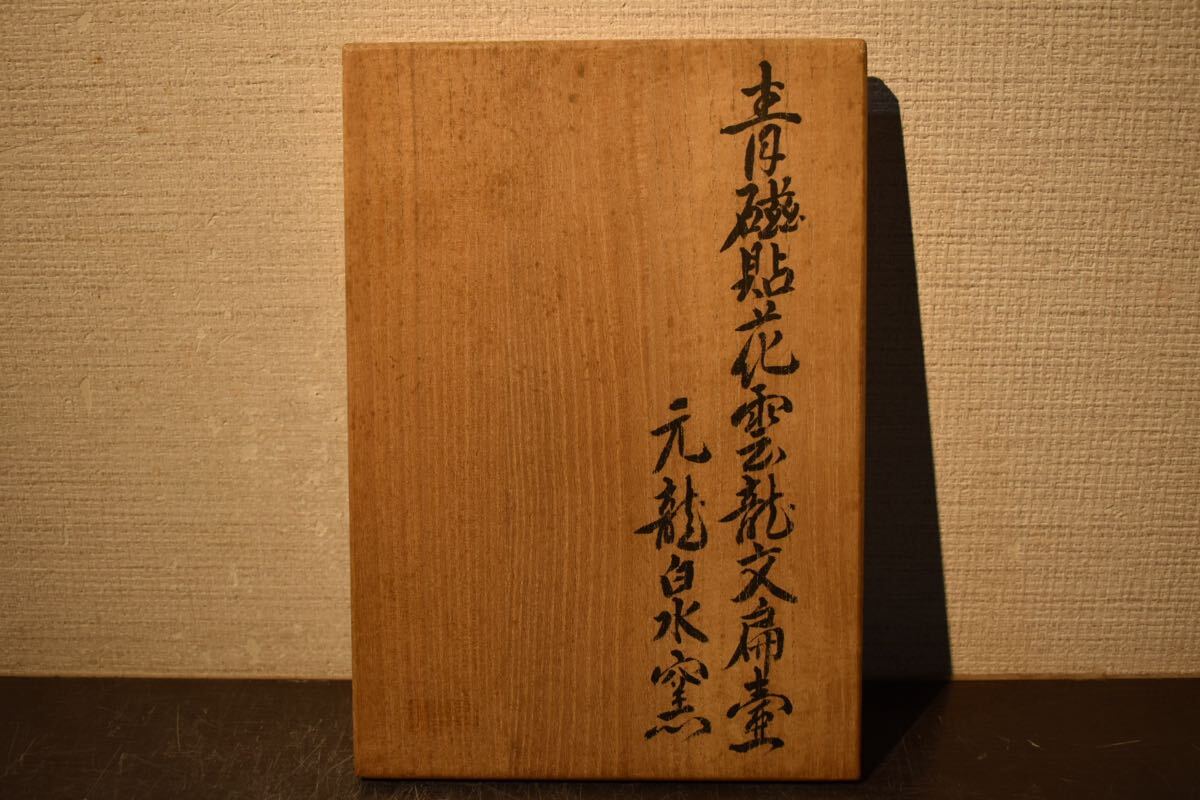 青磁貼花雲龍文扁壷
元龍白水窯